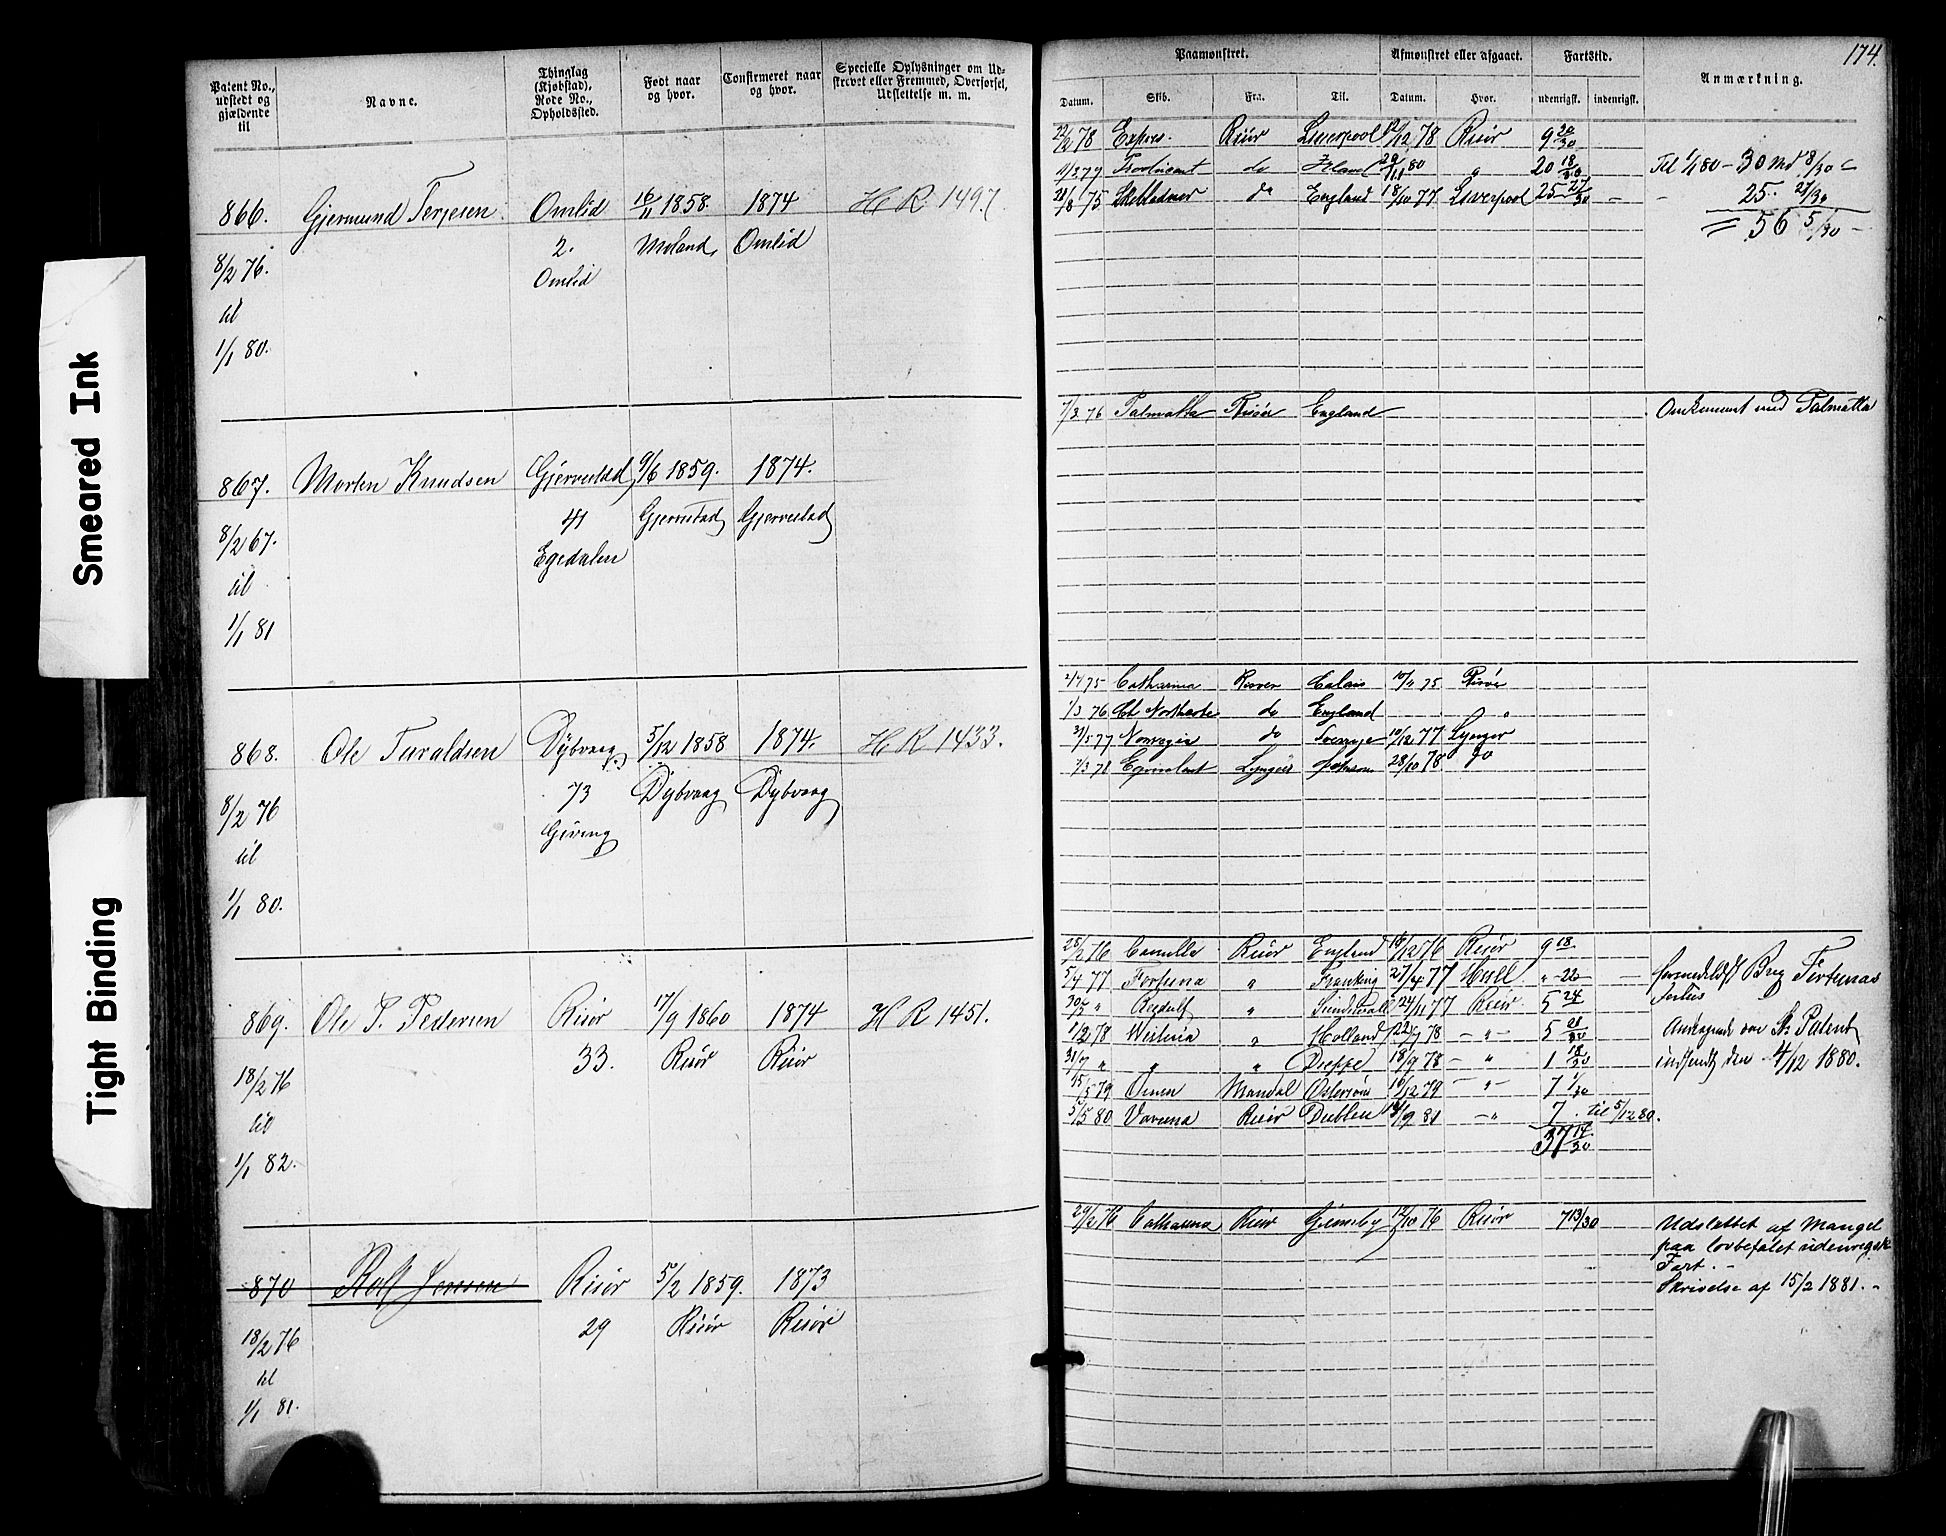 Smeared Ink
Tight Binding
Patent No., udstedt og gjældende til
Navne.
Thinglag (Kjøbstad), Rode No., Opholdssted.
Født naar og hvor.
Confirmeret naar og hvor.
Specielle Oplysninger om Udskrevet eller Fremmed, Overførsel, Udslettelse m. m.
Paamønstret.
Afmønstret eller afgaaet.
Fartstid.
Anmærkning.
174.
Datum. Skib. Fra. Til. Datum. Hvor. udenrigsk. indenrigsk.
866. Gjermund Terjesen Omlid 16/11 1858. 1874 H R 1497.
2. Moland, Omlid
8/2 76. Omlid
til
1/1 80.
22/2 78 Expres. Risør Liverpool 12/12 78 Risør 9 20/30
1/3 79 do 29/11 80 " 20 18/30 Til 1/1 80 - 30 Md 8/30
28/8 75 do England 18/10 77 Liverpool 25 27/30 - - 25. 27/30
= 56 5/30 -
867. Morten Knudsen Gjerrestad 9/6 1859. 1874.
41 Gjerrestad Gjerrestad
8/2 67. Egedalen
til
1/1 81
7/3 76 Palmatta Risør England Omkommet med Palmatta
868. Ole Tervaldsen Dybvaag 5/12 1858 1874. H R 1433.
73 Dybvaag Dybvaag
8/2 76 Gjeving
til
1/1 80.
2/4 75 Catharina Calais 10/11 75 Risør
1/3 76 do England "
31/5 77 Norvegia do Sverige 10/12 77 Lyngør
7/3 78 Eqvivalent Lyngør 28/10 78 do
869. Ole P. Pedersen Risør 17/9 1860 1874 H R 1451.
33. Risør Risør
18/2 76
til
1/1 82.
25/2 76 Camilla Risør England 18/12 76 Risør 9 18
5/4 77 Fortuna " 27/4 77 Hull " 22 - formedelst Brig Fortunas
" " Sundsvall 24/11 77 Risør 5 24 Forlis
1/2 78 " Holland 22/7 78 - " - 5 21/30 Ansøgende om St. Patent
31/7 " " " Dieppe 18/9 78 - " 1 18/30 indsendt den 4/12 1880.
15/5 79 Ornen Mandal Østersøen 16/12 79 - " - 7 1/30
5/5 80 Risør Dublin 14/9 81 - " 7. til 5/12 80.
37 14/30
870 Rolf Jensen Risør 5/2 1859. 1873
29 Risør Risør
18/2 76
til
1/1 81.
29/2 76 Catharina Risør Grimsby 14/10 76 Risør 7 13/30 Udslettet af Mangel
paa lovbefalet udenrigsk
Fart. -
Skrivelse af 15/2 1881. -